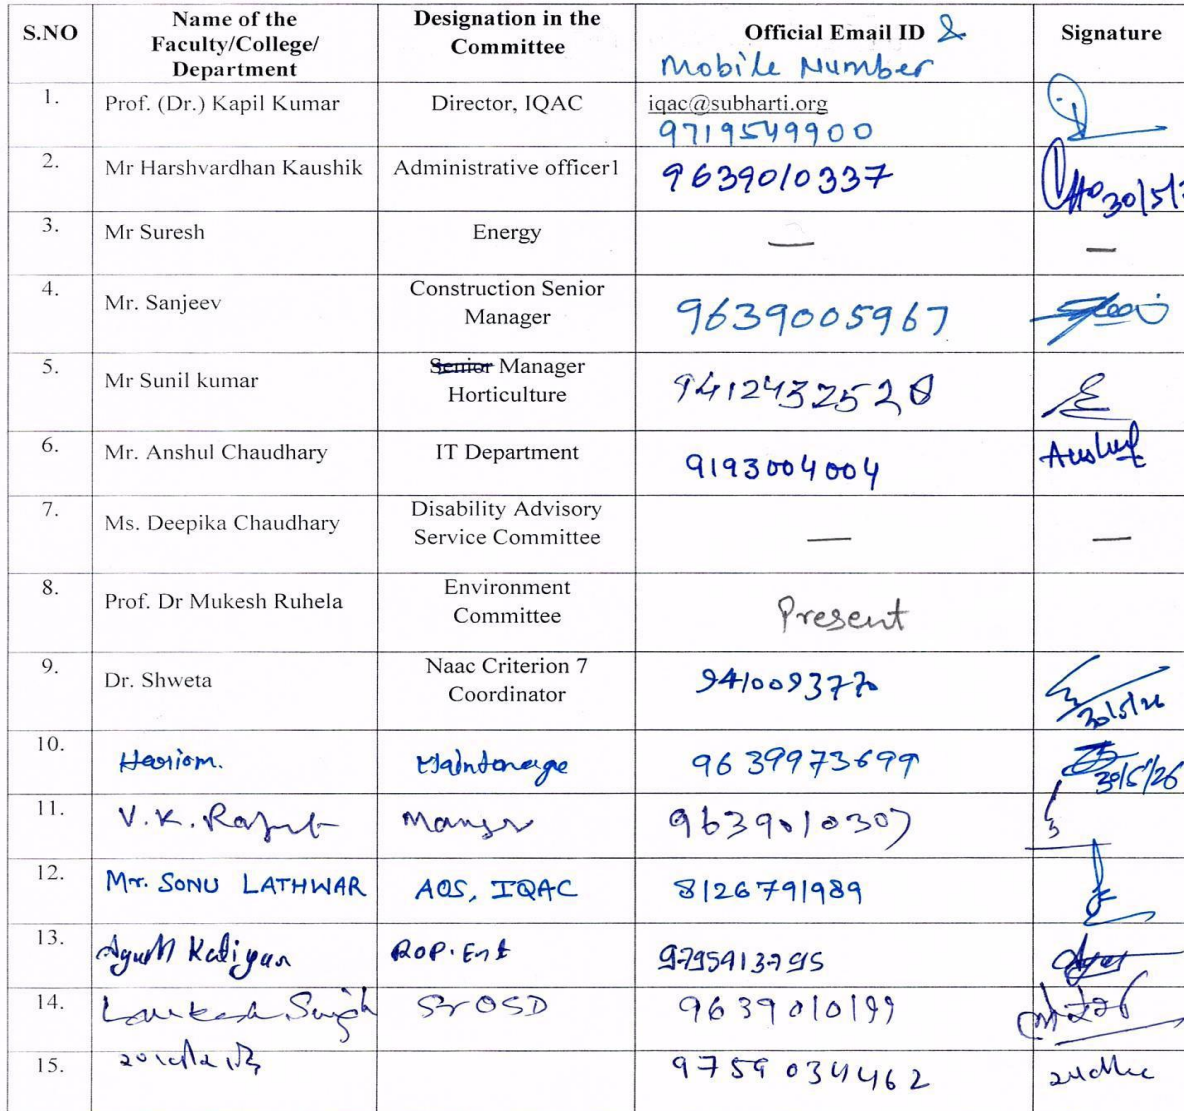 S.NO
Name of the Faculty/College/ Department
Designation in the Committee
Official Email ID &
Mobile Number
Signature
1. Prof. (Dr.) Kapil Kumar Director, IQAC iqac@subharti.org
9719549900
2. Mr Harshvardhan Kaushik Administrative officer1 9639010337
30/5/
3. Mr Suresh Energy — —
4. Mr. Sanjeev Construction Senior Manager 9639005967
5. Mr Sunil kumar Senior Manager Horticulture 9412432528
6. Mr. Anshul Chaudhary IT Department 9193004004 Anshul
7. Ms. Deepika Chaudhary Disability Advisory Service Committee — —
8. Prof. Dr Mukesh Ruhela Environment Committee Present
9. Dr. Shweta Naac Criterion 7 Coordinator
30/5/26
10. Hariom. 9639973699
30/5/26
11. V.K. 9639010307
12. Mr. SONU LATHWAR AOS, IQAC 8126791989
13. 9795913795
14. Singh Sr OSD 9639010199
15. 9759034462